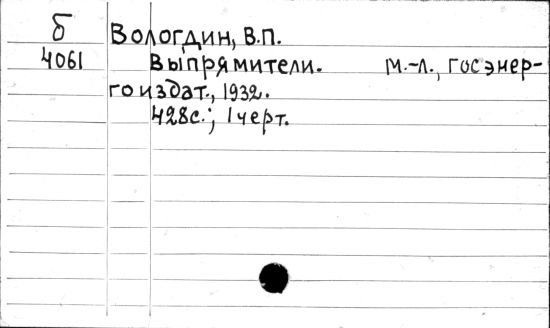 Б Вологдин, В.П.
4061 Выпрямители. М.-Л., Госэнер-
гоиздат., 1932.
428с.; 1 черт.